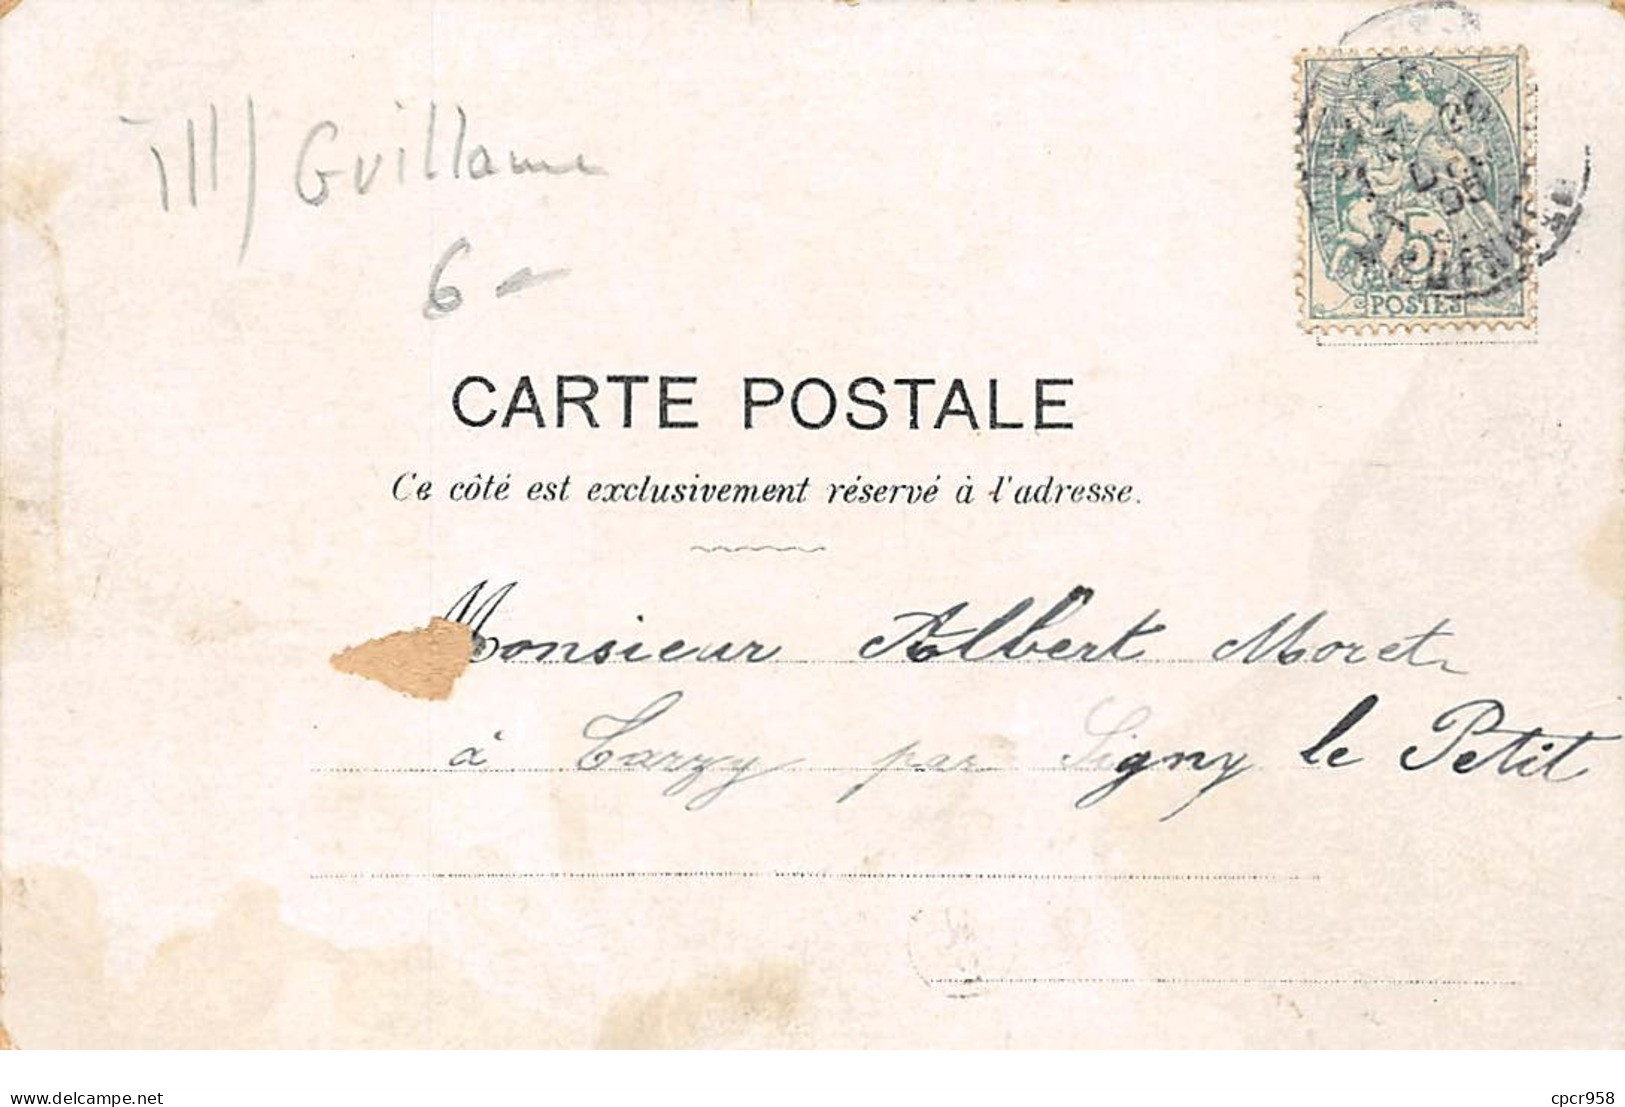 ill) Guillaume
6 -
5
POSTES
CARTE POSTALE
Ce côté est exclusivement réservé à l'adresse.
Monsieur Albert Moret
à Tarzy par Signy le Petit
www.delcampe.net
cpcr958